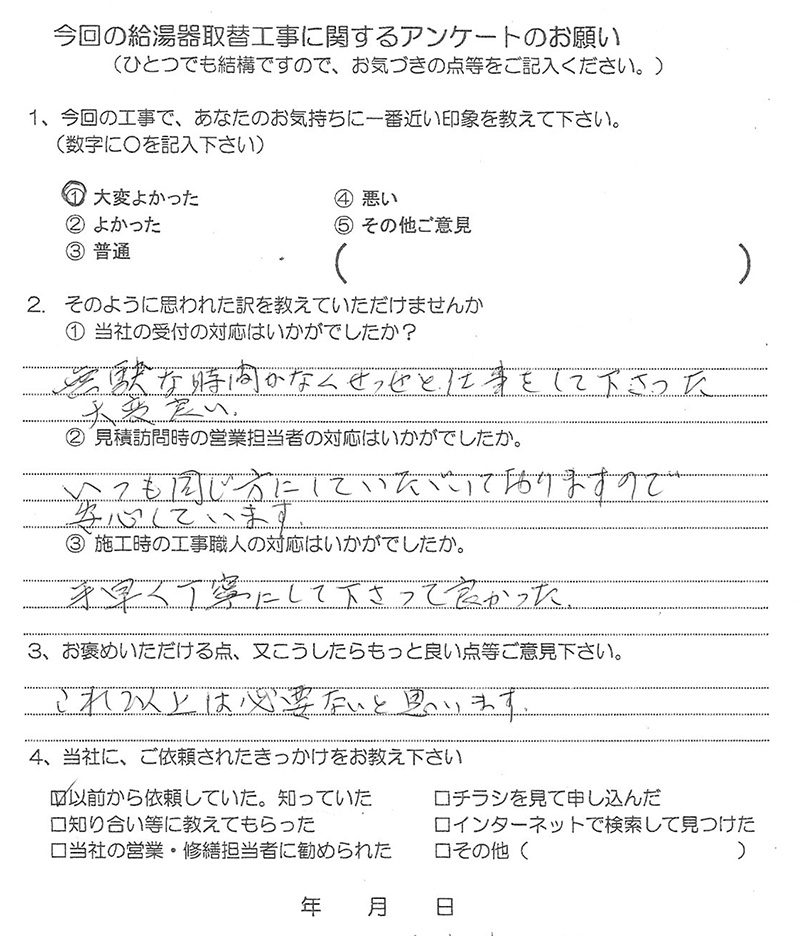 今回の給湯器取替工事に関するアンケートのお願い
(ひとつでも結構ですので、お気づきの点等をご記入ください。)
1、今回の工事で、あなたのお気持ちに一番近い印象を教えて下さい。
(数字に〇を記入下さい)
① 大変よかった
② よかった
③ 普通
④ 悪い
⑤ その他ご意見
( )
2. そのように思われた訳を教えていただけませんか
① 当社の受付の対応はいかがでしたか?
無駄な時間がなくせっせと仕事をして下さった
大変良い.
② 見積訪問時の営業担当者の対応はいかがでしたか。
いつも同じ方にしていただいておりますので
安心しています.
③ 施工時の工事職人の対応はいかがでしたか。
手早く丁寧にして下さって良かった.
3、お褒めいただける点、又こうしたらもっと良い点等ご意見下さい。
これ以上は必要ないと思います.
4、当社に、ご依頼されたきっかけをお教え下さい
☑以前から依頼していた。知っていた
□知り合い等に教えてもらった
□当社の営業・修繕担当者に勧められた
□チラシを見て申し込んだ
□インターネットで検索して見つけた
□その他( )
年 月 日